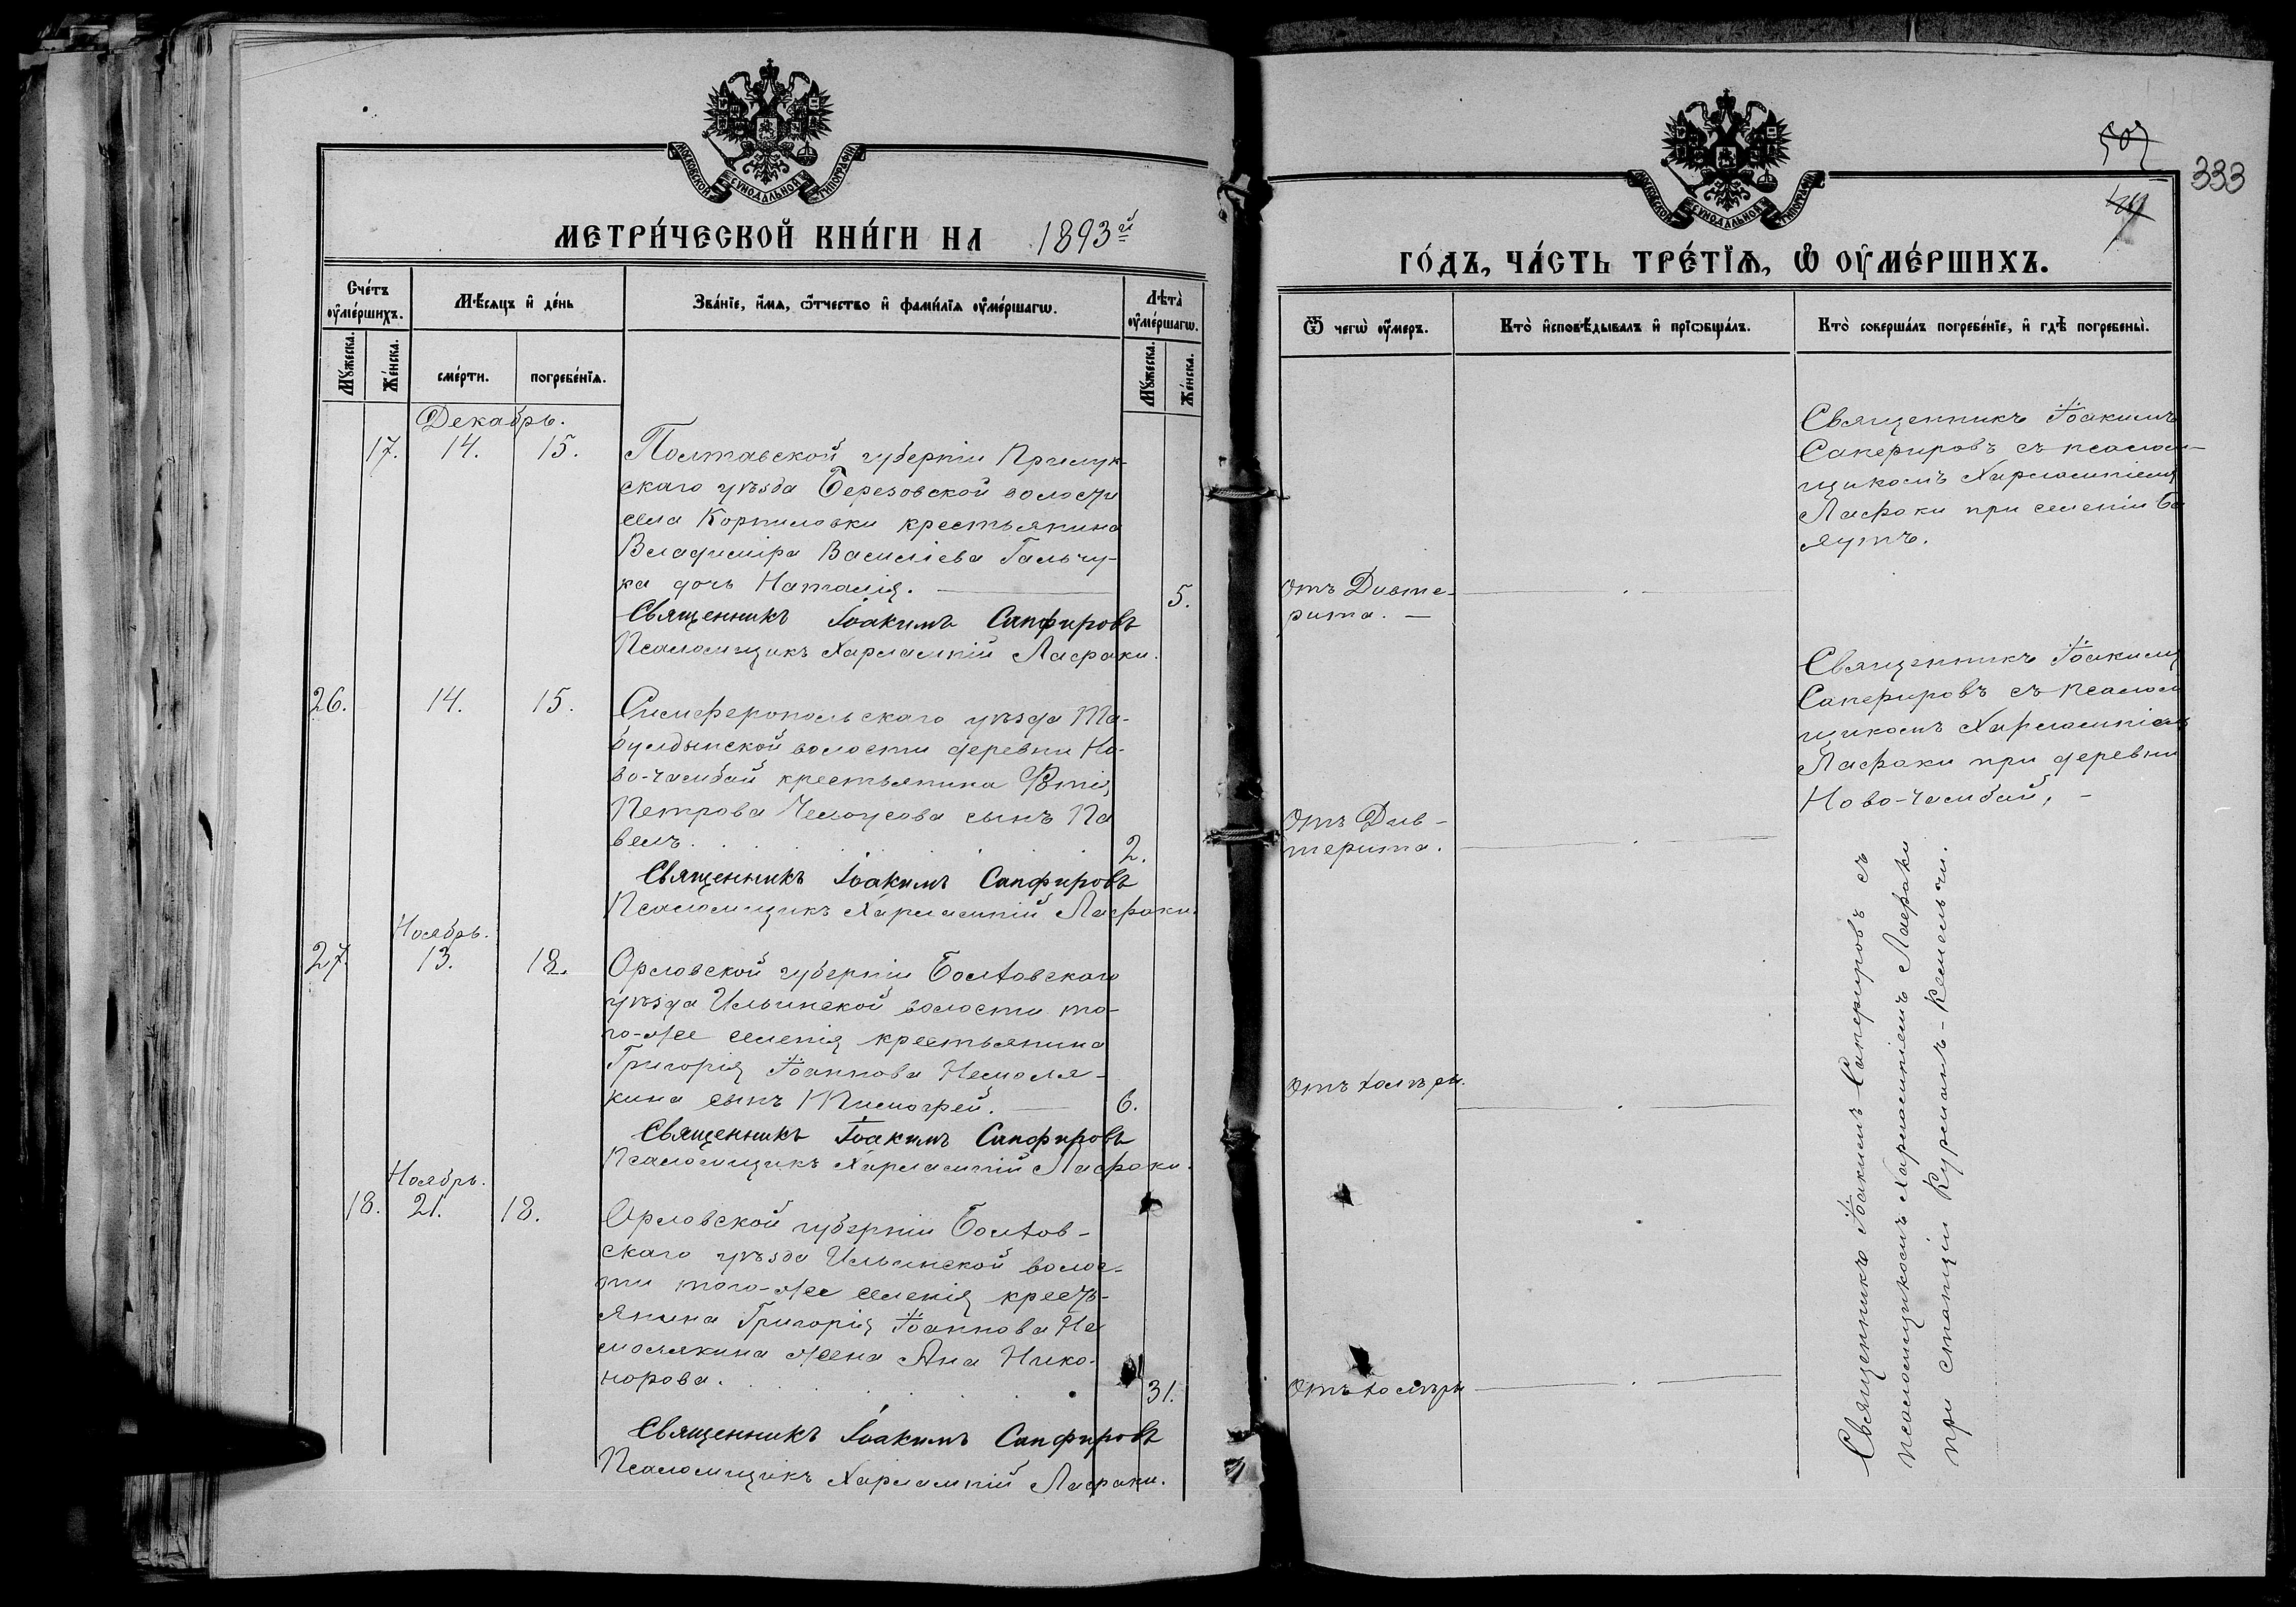 МОСКОВСКОЙ СУНОДАЛЬНОЙ ТИПОГРАФІИ
МЕТРИ́ЧЕСКОЙ КНИ́ГИ НА 1893й
Сче́тъ оу҆ме́ршихъ.
Мѣ́сяцъ и҆ де́нь
Зва́нїе, и҆́мя, ѻ҆́тчество и҆ фами́лїя оу҆ме́ршагѡ.
Лѣта̀ оу҆ме́ршагѡ.
Му́жеска.
Же́нска.
сме́рти.
погребе́нїя.
Му́жеска.
Же́нска.
Декабрь.
17. 14. 15.
Полтавской губерніи Прилук-
скаго уѣзда Березовской волости
села Корниловки крестьянина
Владиміра Василіева Гальчу-
ка дочь Наталія.
5.
Священникъ Іоакимъ Сапфировъ
Псаломщикъ Харлампій Ласфаки.
26. 14. 15.
Симферопольскаго уѣзда Та-
булдынской волости деревни Но-
во-Чамбай крестьянина
Петрова сынъ Па
велъ.
2.
Священникъ Іоакимъ Сапфировъ
Псаломщикъ Харлампій Ласфаки.
Ноябрь.
27. 13. 18.
Орловской губерніи Болховскаго
уѣзда Ильинской волости то-
го-же селенія крестьянина
Григорія Іоаннова Немоля-
кина сынъ Тимофей.
6.
Священникъ Іоакимъ Сапфировъ
Псаломщикъ Харлампій Ласфаки.
Ноябрь.
18. 21. 18.
Орловской губерніи Болхов-
скаго уѣзда Ильинской волос-
ти того-же селенія кресть-
янина Григорія Іоаннова Не
молякина жена Ана Нико-
норова.
31.
Священникъ Іоакимъ Сапфировъ
Псаломщикъ Харлампій Ласфаки.
МОСКОВСКОЙ СУНОДАЛЬНОЙ ТИПОГРАФІИ
333
ГО́ДЪ, ЧА́СТЬ ТРЕ́ТЇѦ, Ѡ҆ ОУ҆МЕ́РШИХЪ.
Ѿ чегѡ̀ оу҆́меръ.
Кто̀ и҆сповѣ́дывалъ и҆ прїѡбща́лъ.
Кто̀ соверша́лъ погребе́нїе, и҆ гдѣ̀ погребены̀.
Священникъ Іоакимъ
Сапфировъ съ псалом-
щикомъ Харлампіемъ
Ласфаки при селеніи Бо
яутъ.
Отъ Дивте-
рита.
Священникъ Іоакимъ
Сапфировъ съ псалом
щикомъ Харлампіемъ
Ласфаки при деревни
Ново-Чамбай.
Отъ Див-
терита.
Отъ холеры.
Отъ холеры
Священникъ Іоакимъ Сапфировъ съ
псаломщикомъ Харлампіемъ Ласфаки
при станціи Курманъ-Кемельчи.